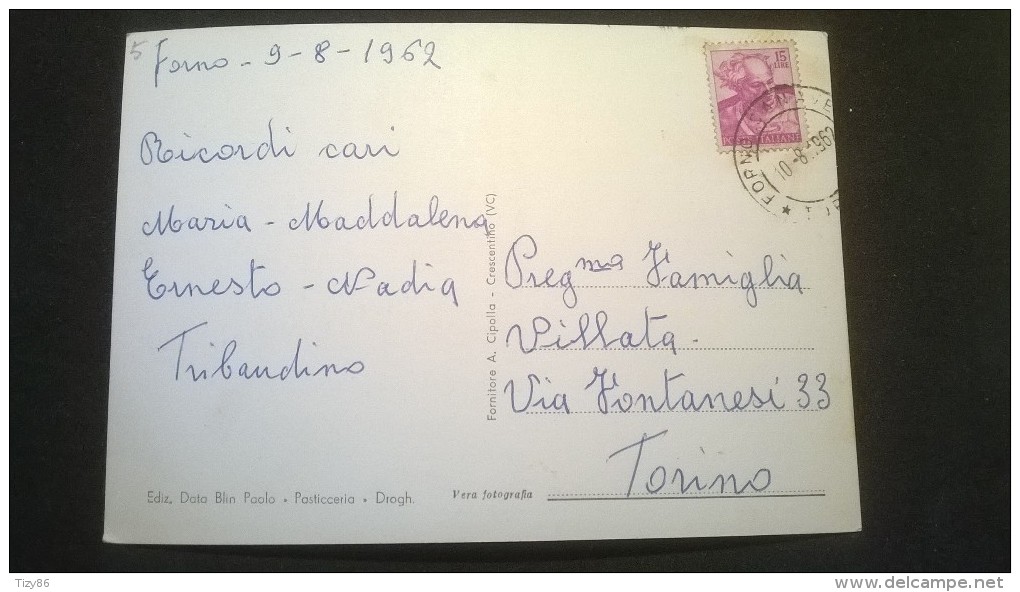 5
Forno - 9-8-1962
Ricordi cari
Maria - Maddalena
Ernesto - Nadia
Tribaudino
Ediz. Data Blin Paolo • Pasticceria • Drogh.
Fornitore A. Cipolla - Crescentino (VC)
Vera fotografia
15
LIRE
ITALIANE
FORNO
10-8-1962
Pregma Famiglia
Villata
Via Fontanesi 33
Torino
Tizy86
www.delcampe.net